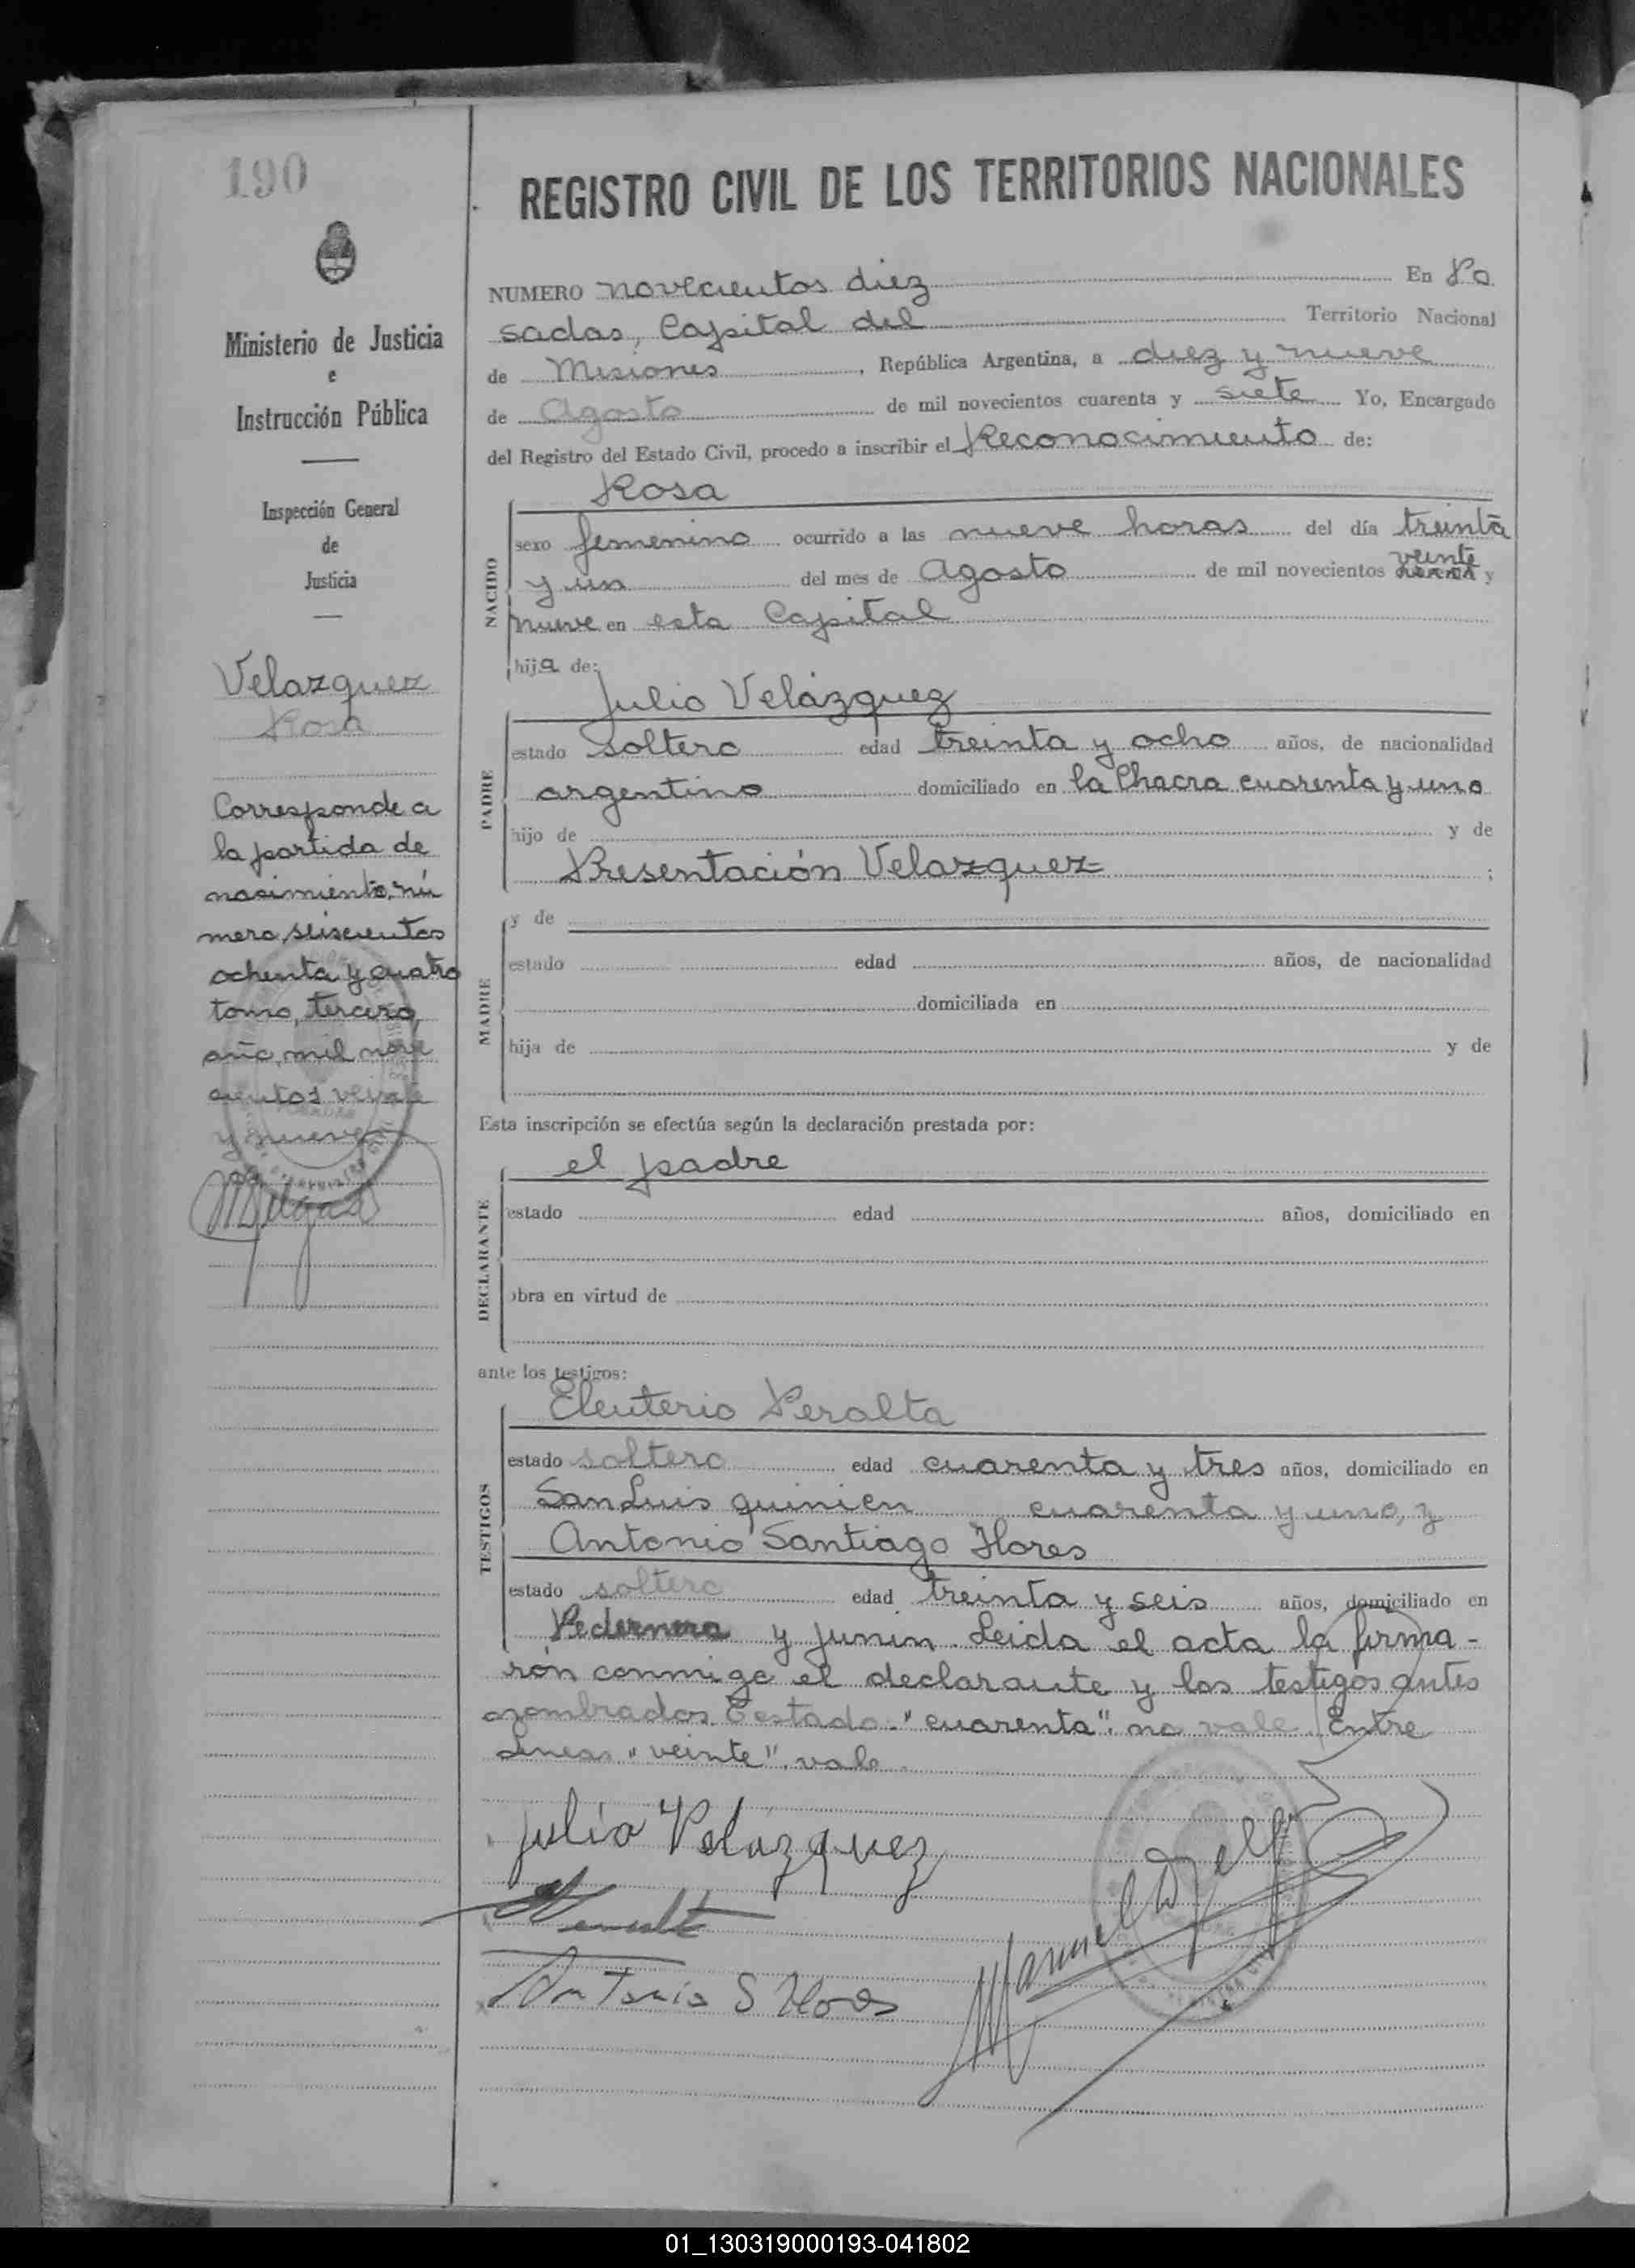 190
REGISTRO CIVIL DE LOS TERRITORIOS NACIONALES
Ministerio de Justicia
e
Instrucción Pública
Inspección General
de
Justicia
Velazquez
Rosa
Corresponde a
la partida de
nacimiento, nú
mero, seiscientos
ochenta y cuatro
tomo, tercero,
año, mil nove
cientos veinte
y nueve
NUMERO novecientos diez En Po
sadas, Capital del Territorio Nacional
de Misiones, República Argentina, a diez y nueve
de Agosto de mil novecientos cuarenta y siete Yo, Encargado
del Registro del Estado Civil, procedo a inscribir el Reconocimiento de:
NACIDO
Rosa
sexo femenino ocurrido a las nueve horas del día treinta
veinte
y un del mes de Agosto de mil novecientos y
nueve en esta Capital
hija de:
PADRE
Julio Velázquez
estado soltero edad treinta y ocho años, de nacionalidad
argentino domiciliado en la Chacra cuarenta y uno
hijo de y de
Presentación Velazquez ;
MADRE
y de
estado edad años, de nacionalidad
domiciliada en
hija de y de
Esta inscripción se efectúa según la declaración prestada por:
DECLARANTE
el padre
estado edad años, domiciliado en
obra en virtud de
ante los testigos:
TESTIGOS
Eleuterio Peralta
estado soltero edad cuarenta y tres años, domiciliado en
San Luis quinien cuarenta y uno, y
Antonio Santiago Flores
estado soltero edad treinta y seis años, domiciliado en
Pedernera y Junin. Leida el acta la firma-
rón conmigo el declarante y los testigos antes
nombrados. Testado "cuarenta". no vale. Entre
Lineas "veinte". vale.
Julio Velázquez
Antonio S Flores
01_130319000193-041802